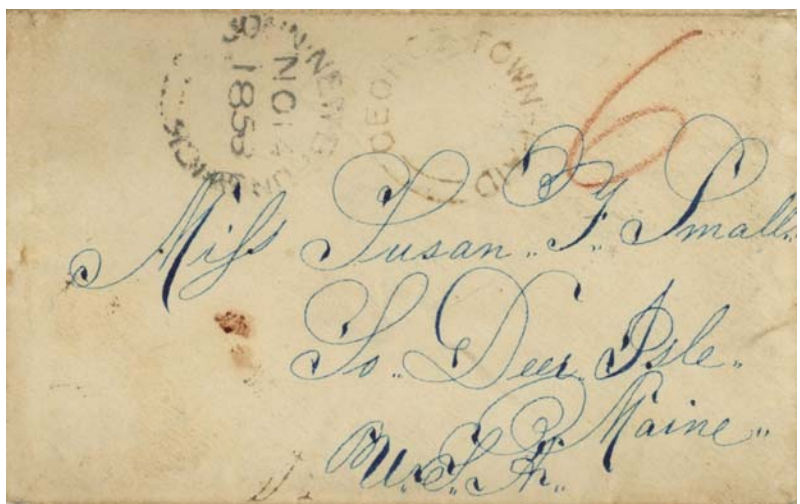 NO 14
1858
GEORGE TOWN
6
Miss Susan. F. Small.
So. Deer Isle.
Maine.
U.S.A.